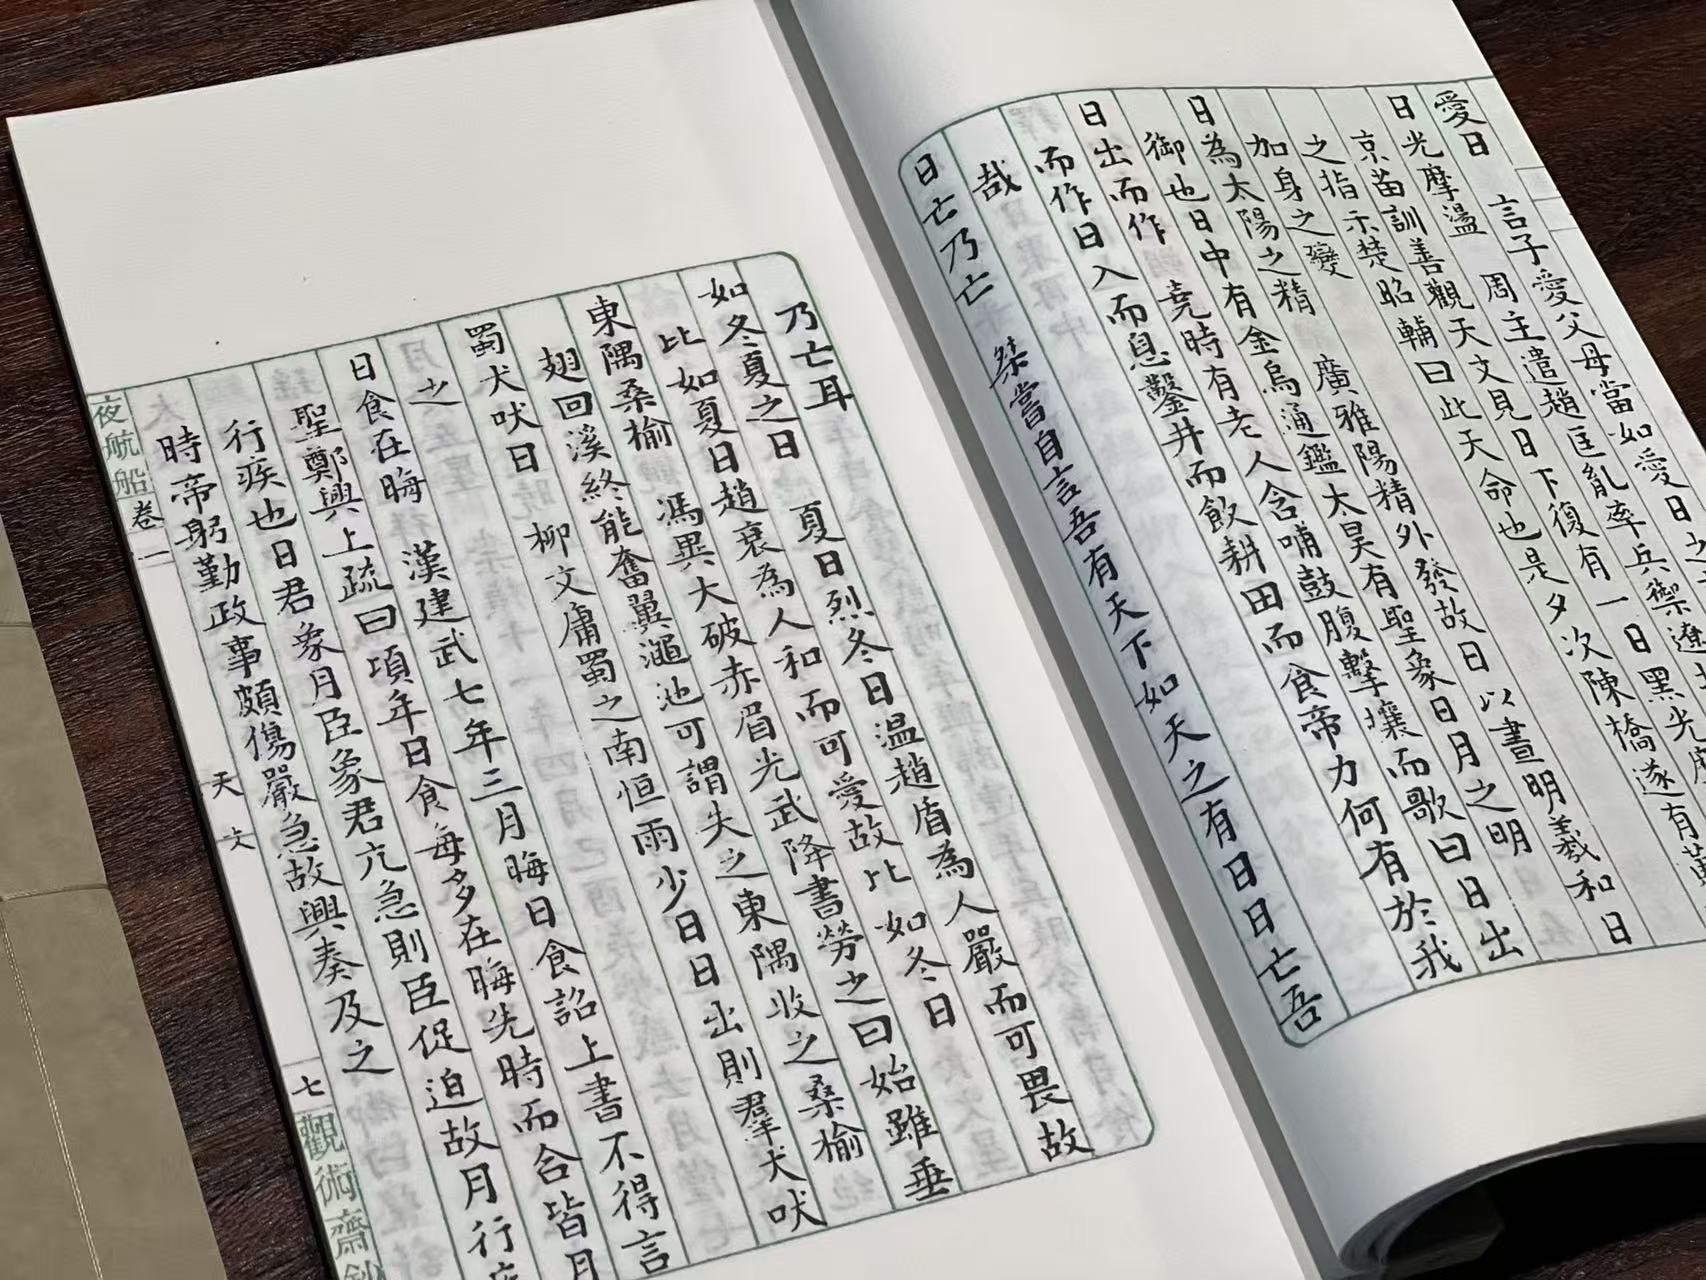 愛日　言子愛父母當如愛日之
日光摩盪　周主遣趙匡胤率兵禦遼
京苗訓善觀天文見日下復有一日黑光
之指示楚昭輔曰此天命也是夕次陳橋遂有
加身之變
日為太陽之精　廣雅陽精外發故日以晝明羲和日
御也日中有金烏通鑑太昊有聖象日月之明
日出而作　堯時有老人含哺鼓腹擊壤而歌曰日出
而作日入而息鑿井而飲耕田而食帝力何有於我
哉
日亡乃亡　桀嘗自言吾有天下如天之有日日亡吾
乃亡耳
如冬夏之日　夏日烈冬日温趙盾為人嚴而可畏故
比如夏日趙衰為人和而可愛故比如冬日
東隅桑榆　馮異大破赤眉光武降書勞之曰始雖垂
翅回溪終能奮翼澠池可謂失之東隅收之桑榆
蜀犬吠日　柳文庸蜀之南恒雨少日日出則羣犬吠
之
日食在晦　漢建武七年三月晦日食詔上書不得言
聖鄭興上疏曰頃年日食每多在晦先時而合皆月
行疾也日君象月臣象君亢急則臣促迫故月行
時帝躬勤政事頗傷嚴急故興奏及之
夜航船　卷一　天文　七　觀術齋鈔